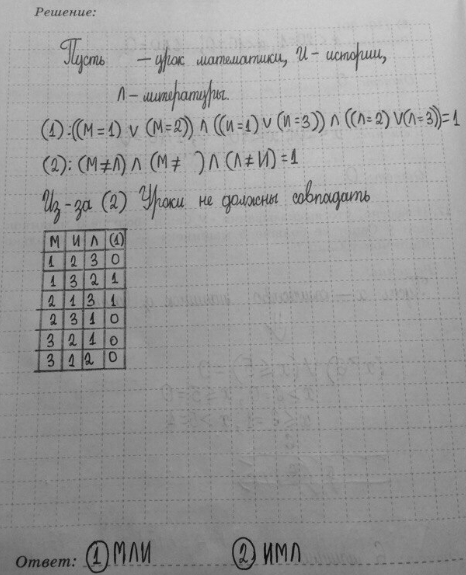 Решение:
Пусть — урок математики, И - истории,
Л - литературы.
(1): ((М=1) ∨ (М=2)) ∧ ((И=1) ∨ (И=3)) ∧ ((Л=2) ∨ (Л=3))=1
(2): (М≠Л) ∧ (М≠ ) ∧ (Л≠И)=1
Из-за (2) Уроки не должны совпадать
М И Л (1)
1 2 3 0
1 3 2 1
2 1 3 1
2 3 1 0
3 2 1 0
3 1 2 0
Ответ: ① МЛИ ② ИМЛ